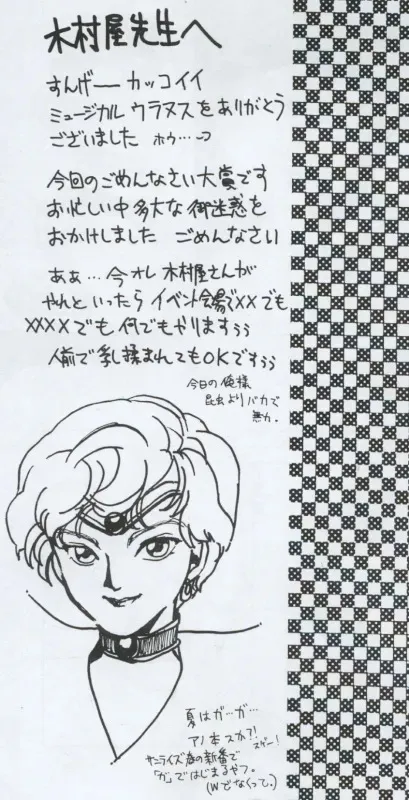 木村屋先生へ
すんげーー カッコイイ
ミュージカル ウラヌスをありがとう
ございました ホウ…
今回のごめんなさい大賞です
お忙しい中多大な御迷惑を
おかけしました ごめんなさい
あぁ…今オレ 木村屋さんが
やれといったら イベント会場で××でも
××××でも何でもやりますぅぅ
人前で乳揉まれてもOKですぅぅ
今日の俺様
昆虫よりバカで
無力.
夏はガ‥ガ…
アノ本スか?!
スゲー!
サンライズ発の新番で
「ガ」ではじまるヤツ。
(Wでなくって。)